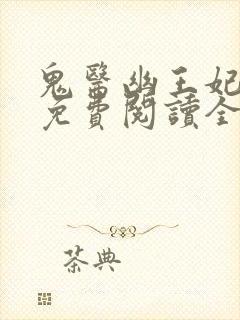 鬼醫幽王妃
免費閱讀全
茶典